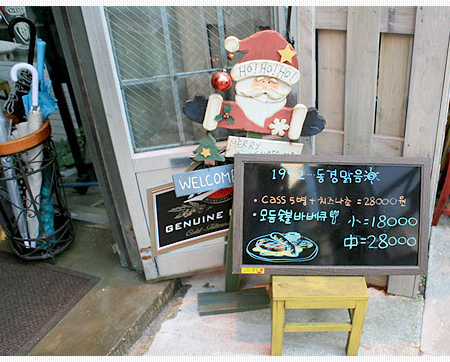 HO! HO! HO!
MERRY
WELCOME
GENUINE
19
동경맑음
• CASS 5병 + 치즈나쵸 = 28000원
• 모듬 바베큐 小 = 18000
中 = 28000